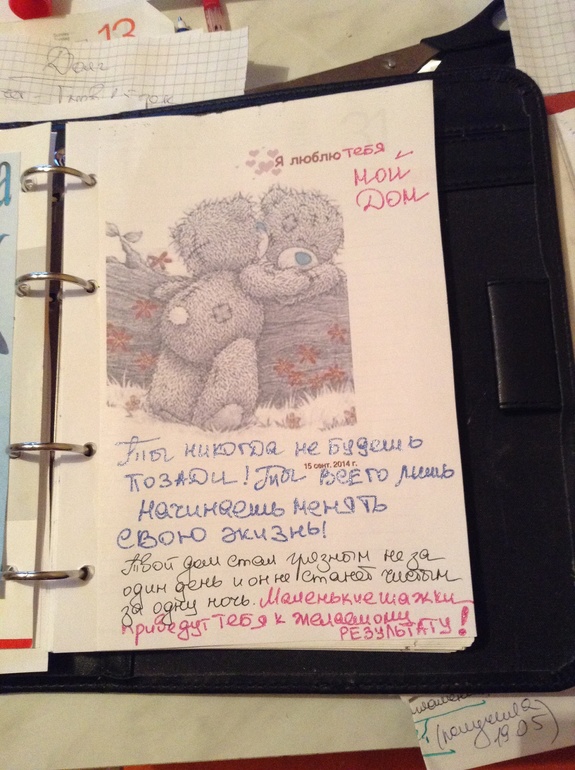 13
Долг
Я люблю тебя
мой
Дом
Ты никогда не будешь
15 сент. 2014 г.
позади! Ты всего лишь
начинаешь менять
свою жизнь!
Твой дом стал грязным не за
один день и он не станет чистым
за одну ночь. Маленькие шажки
приведут тебя к желаемому
РЕЗУЛЬТАТУ!
(получила
19.05)